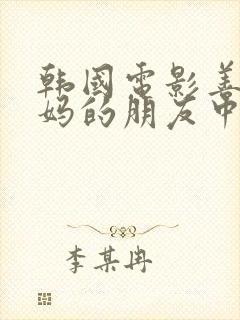 韩国电影善
妈的朋友中
李某冉